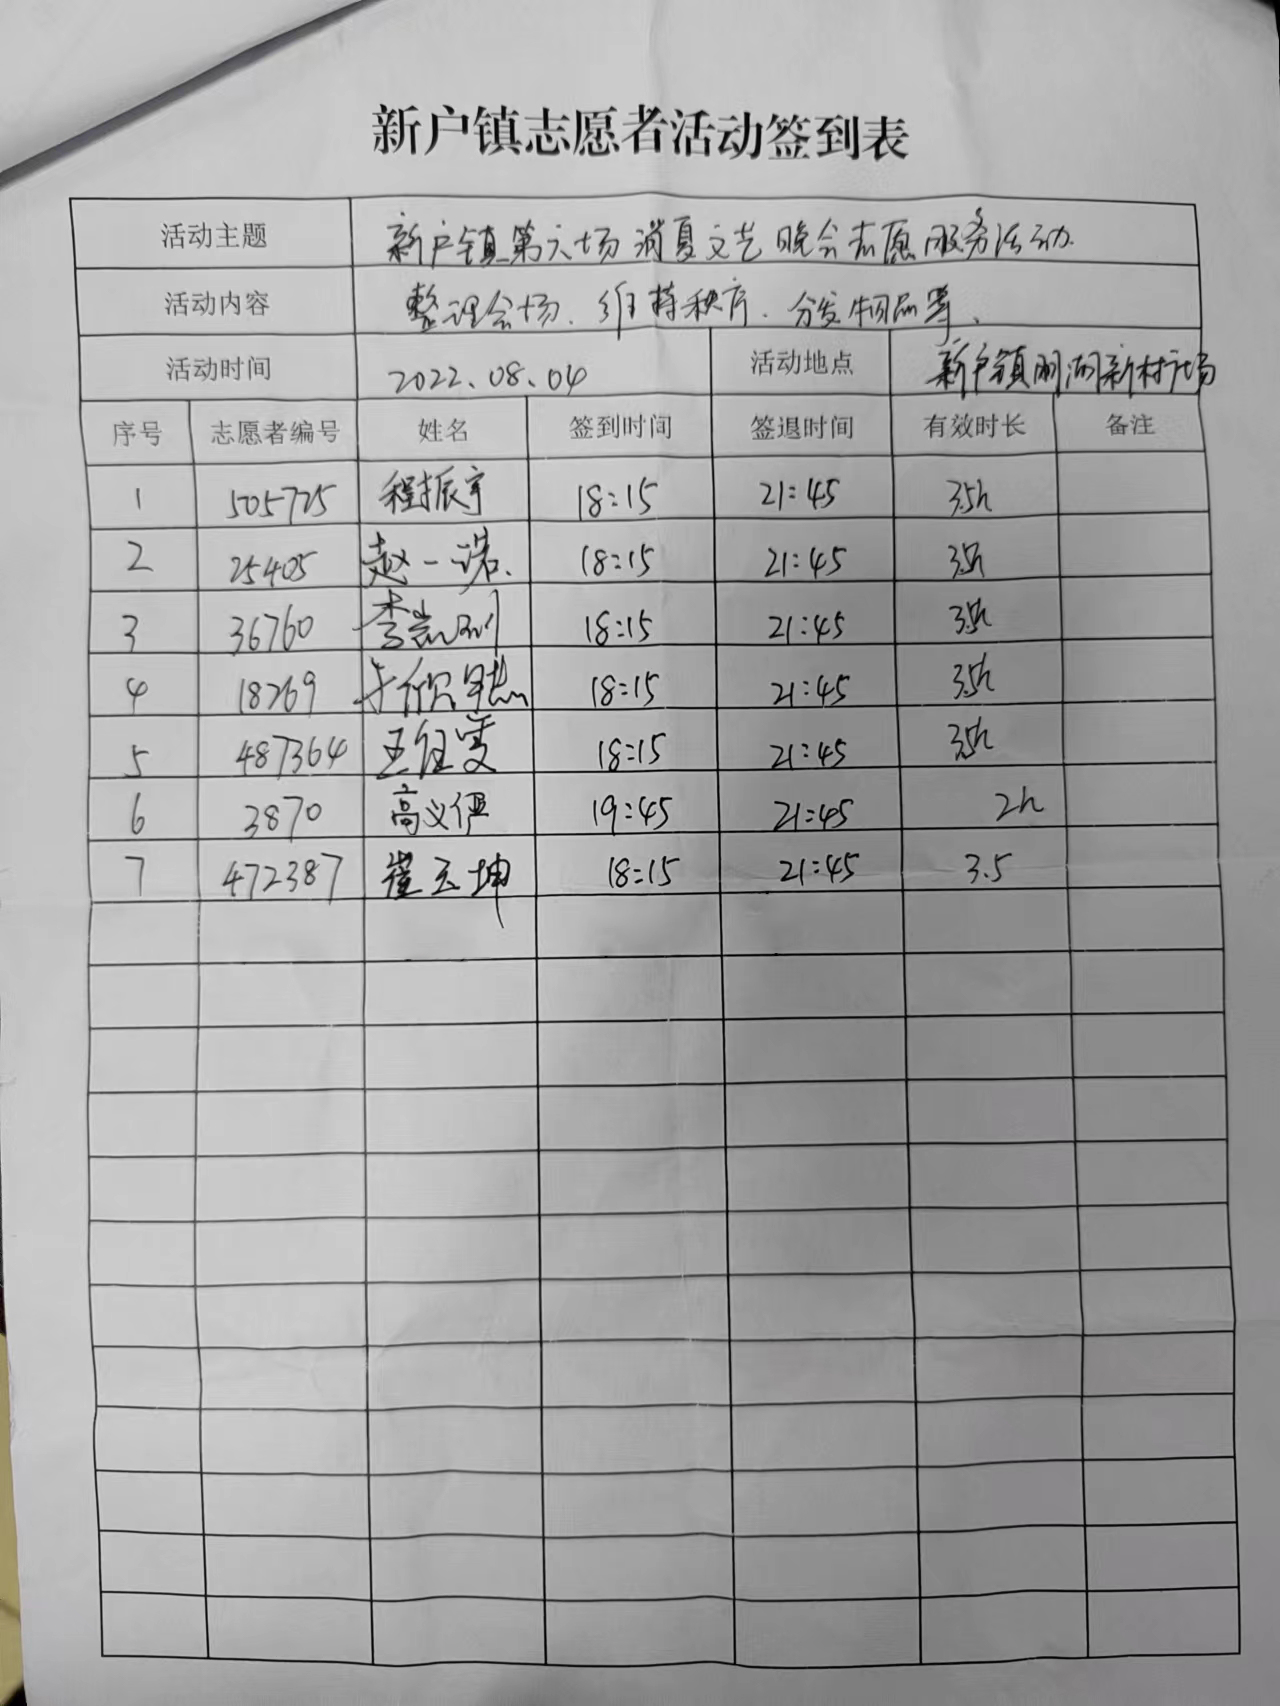 新户镇志愿者活动签到表
活动主题 新户镇第六场消夏文艺晚会志愿服务活动.
活动内容 整理会场、维持秩序、分发物品等、
活动时间 2022.08.04 活动地点 新户镇明湖新村广场
序号 志愿者编号 姓名 签到时间 签退时间 有效时长 备注
1 505725 程振宇 18:15 21:45 3.5h
2 25405 赵一诺. 18:15 21:45 3.5h
3 36760 18:15 21:45 3.5h
4 18269 18:15 21:45 3.5h
5 487364 18:15 21:45 3.5h
6 3870 高义 19:45 21:45 2h
7 472387 崔云坤 18:15 21:45 3.5